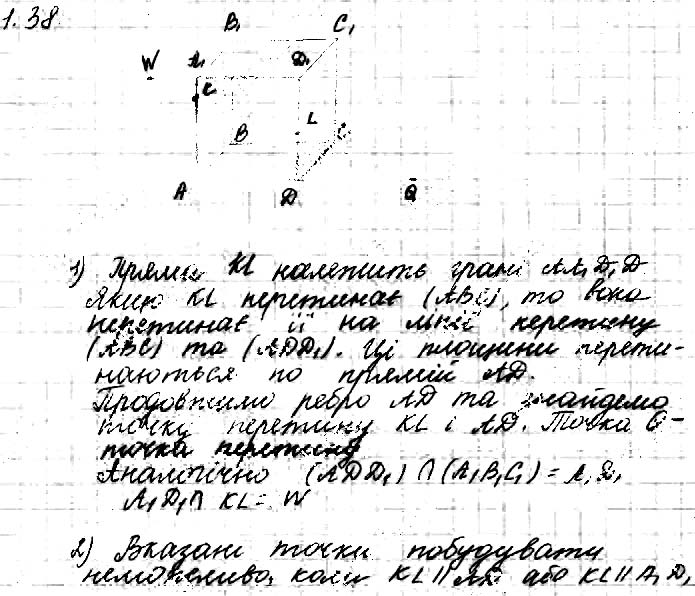 1.38.
B₁ C₁
W A₁ D₁
K
L
B C
A D Q
1) Пряма KL належить грані AA₁D₁D
Якщо KL перетинає (ABC), то вона
перетинає її на лінії перетину
(ABC) та (ADD₁). Ці площини перети-
наються по прямій AD.
Продовжимо ребро AD та знайдемо
точку перетину KL і AD. Точка Q-
точка перетину
Аналогічно (ADD₁) ∩ (A₁B₁C₁) = A₁D₁
A₁D₁ ∩ KL = W
2) Вказані точки побудувати
неможливо, коли KL || AD або KL || A₁D₁